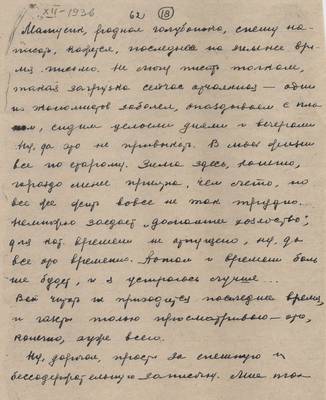 XII-1936
62 (18)
Мамусик, родная голубонька, спешу на-
писать, кажется, последнее по зимнее вре-
мя письмо. Не могу писать толком,
такая загрузка сейчас отчаянная — один
из экономистов заболел, опаздываем с пла-
ном, сидим целыми днями и вечерами
Ну, да это не привыкать. В моей жизни
все по старому. Зима здесь, конечно,
гораздо менее приятна, чем лето, но
все же жить вовсе не так трудно.
Немножко заедает "домашнее хозяйство",
для кот. времени не отпущено, ну, да
все это временно. Потом и времени боль
ше будет, и я устроюсь лучше...
Вот читать не приходится последнее время,
и газеты только просматриваю — это,
конечно, хуже всего.
Ну, дорогая, прости за спешную и
бессодержательную записочку. Мне так